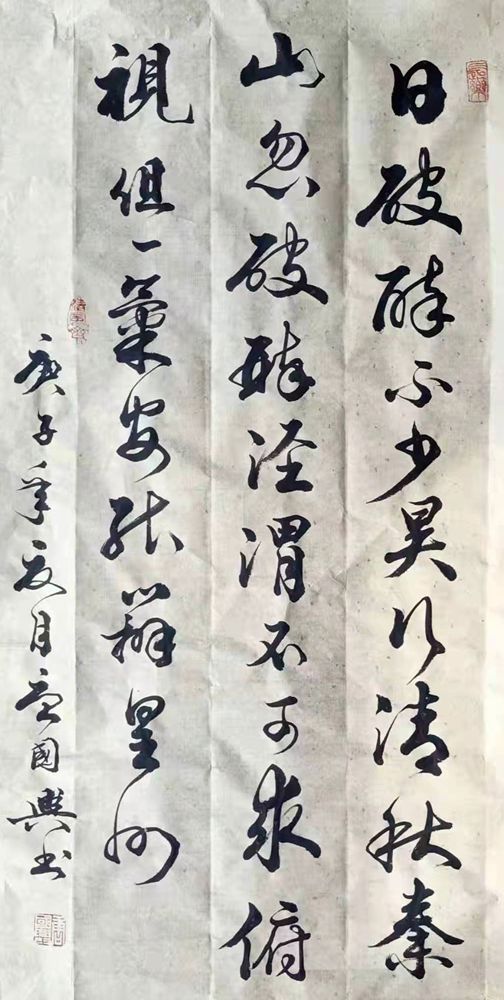 日破碎不少昊行清秋秦
山忽破碎泾渭不可求俯
視但一氣安能辨皇州
庚子年夏月國興书